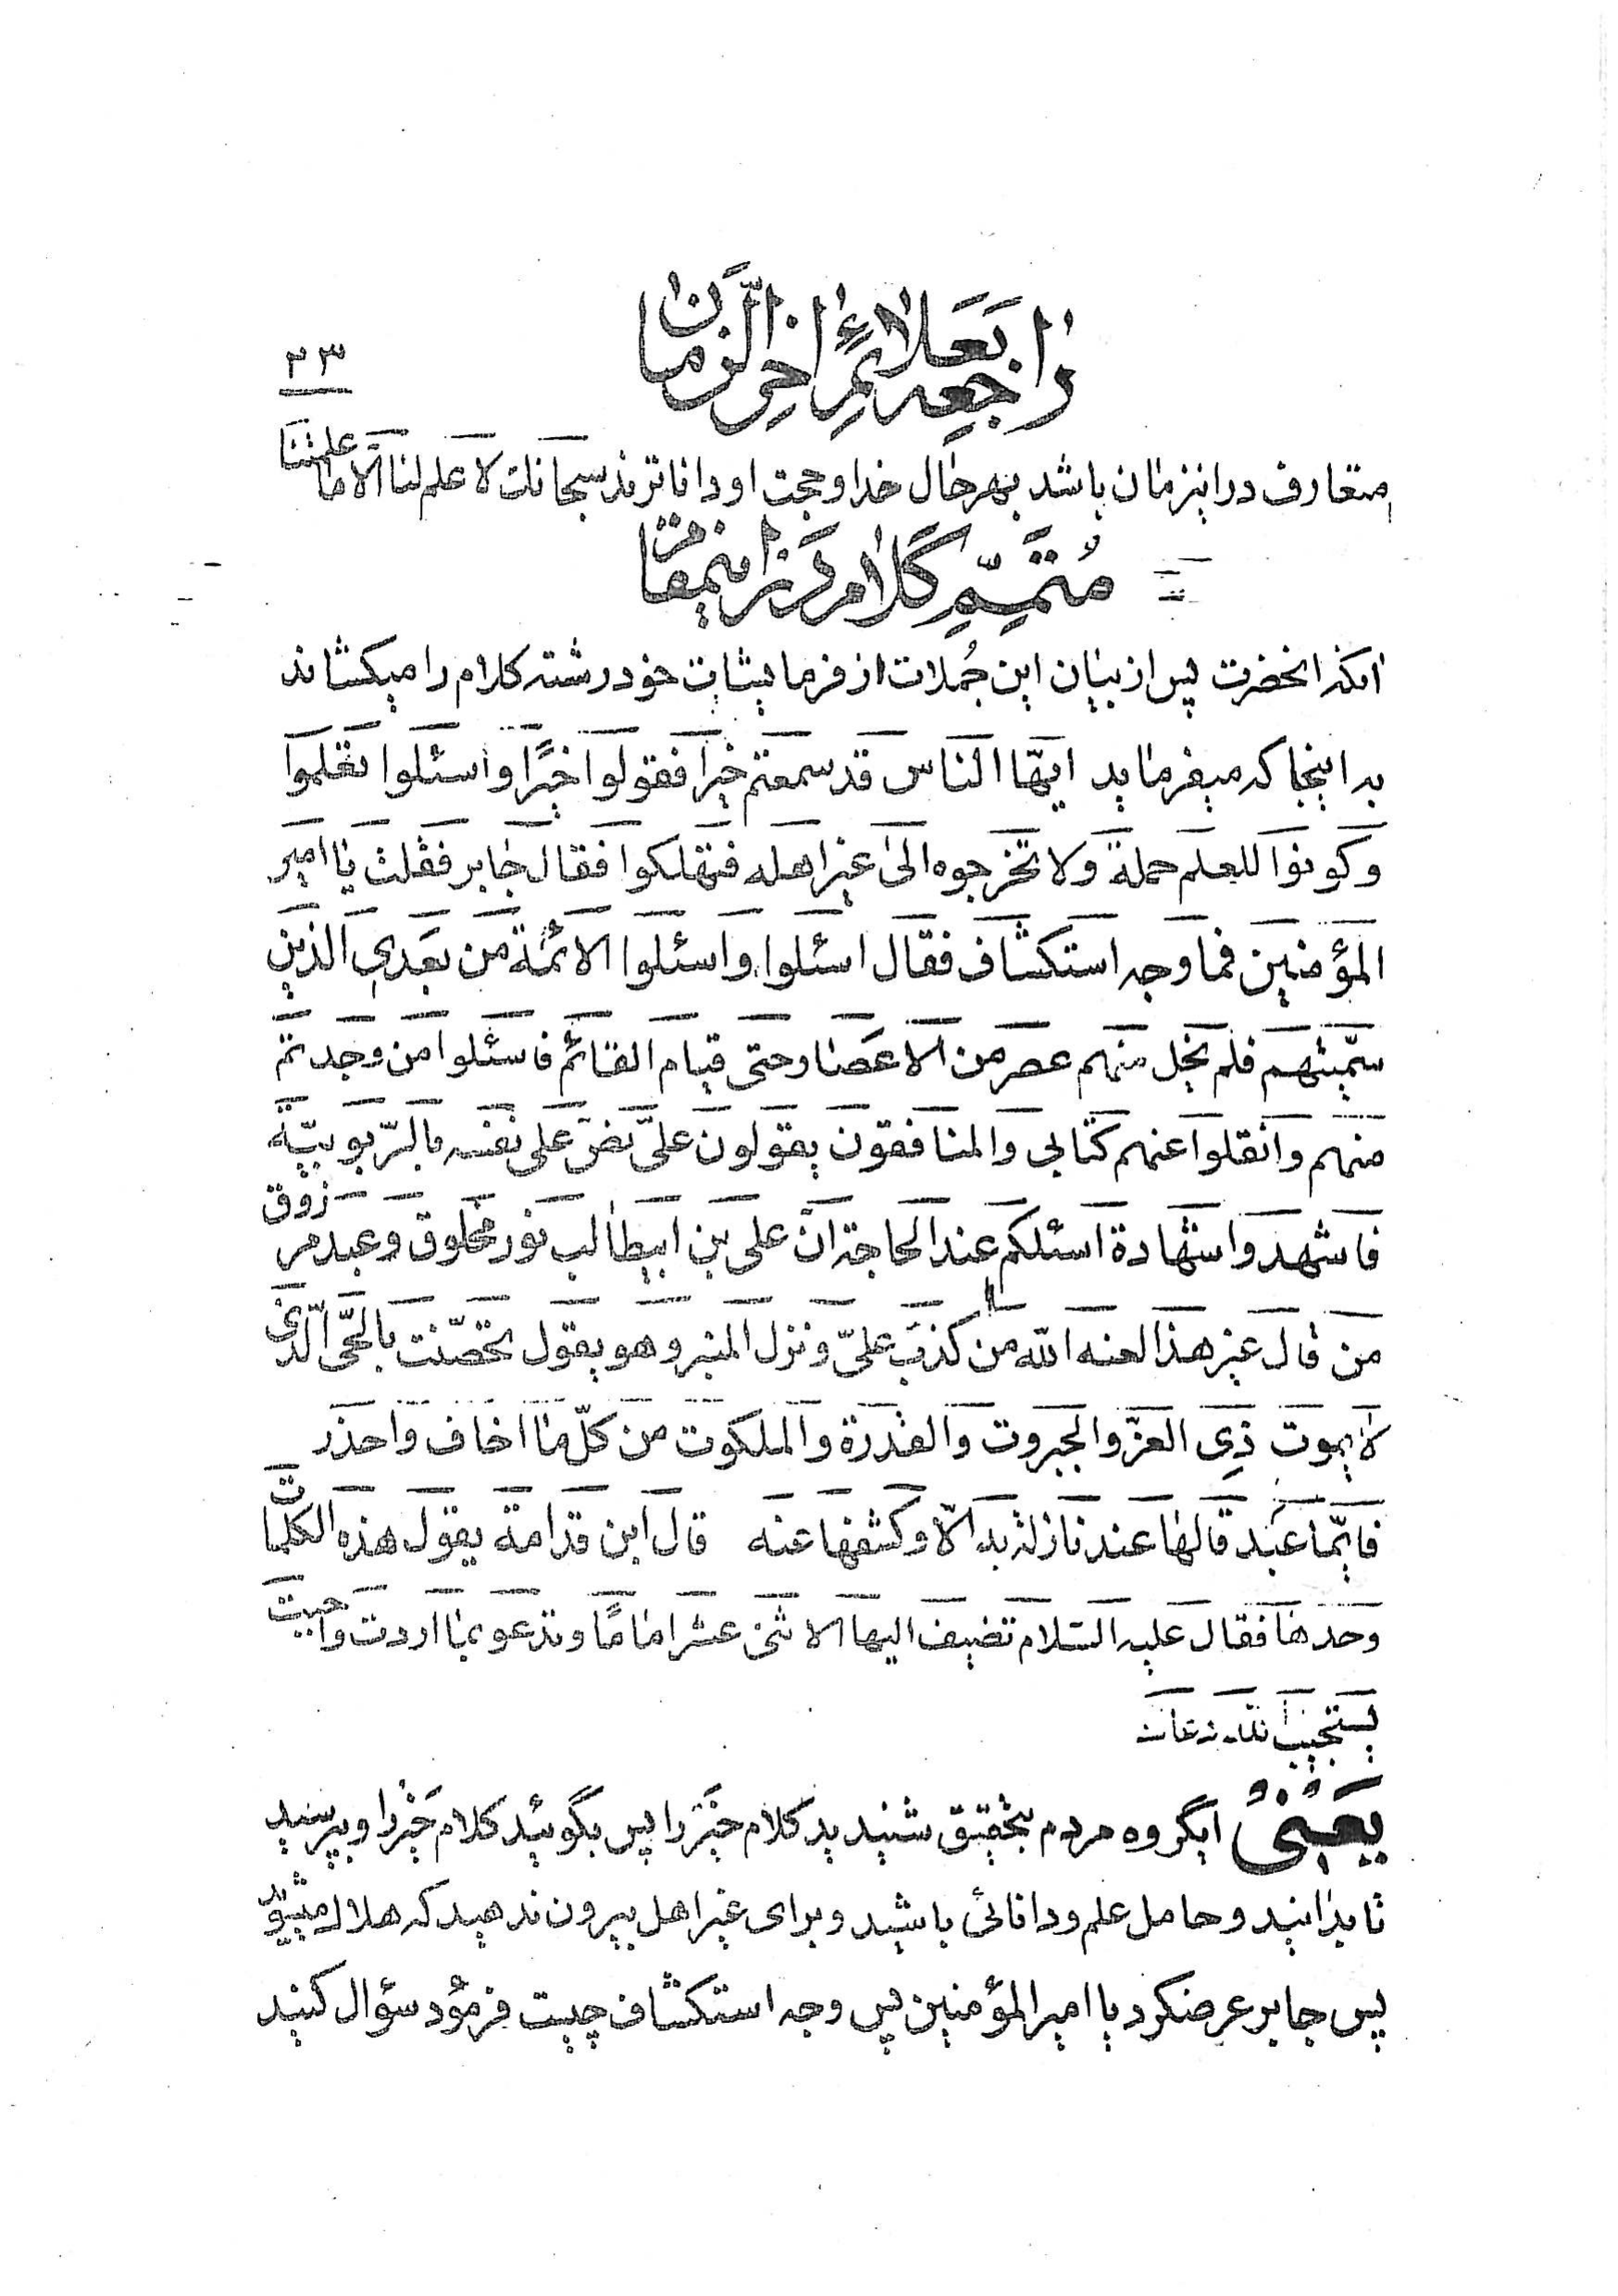 راجعه بعلائم آخر الزمان
۲۳
متعارف در اینزمان باشد بهرحال خدا و حجت او داناترند سبحانک لا علم لنا الّا ما علمتنا
مُتمّم کلام در اینمقام
آنکه آنحضرت پس از بیان این جُملات از فرمایشات خود رشته کلام را میکشاند
به اینجا که میفرماید ایّها الناس قد سمعتم خیرا فقولوا خیرًا و اسئلوا تعلموا
و کونوا للعلم حملة ولا تخرجوه الی غیر اهله فتهلکوا فقال جابر فقلت یا امیر
المؤمنین فما وجه استکشاف فقال اسئلوا و اسئلوا الائمّة من بعدی الذین
سمّیتهم فلم یخل منهم عصر من الاعصار حتی قیام القائم فاسئلوا من وجدتم
منهم وانقلوا عنهم کتابی والمنافقون یقولون علیّ نصّ علی نفسه بالربّوبیّة
فاشهدوا شهادة اسئلکم عند الحاجة انّ علی بن ابیطالب نور مخلوق و عبد مرزوق
من قال غیر هذا لعنه الله من کذب علیّ و نزل المنبر و هو یقول تحصّنت بالحیّ الّذی
لا یموت ذِی العزّ والجبروت والقدرة والملکوت من کلّ ما اخاف واحذر
فایّما عبد قالها عند نازلة به الّا وکشفها عنه قال ابن قدامة یقول هذه الکلمات
وحدها فقال علیه السّلام تضیف الیها الاثنی عشر امامًا وتدعو بما اردت واحببت
یستجیب الله دعاک
یعنی ایگروه مردم بتحقیق شنیدید کلام خیر را پس بگوئید کلام خیر را و بپرسید
تا بدانید و حامل علم و دانائی باشید و برای غیر اهل بیرون ندهید که هلاک میشوید
پس جابر عرضکرد یا امیرالمؤمنین پس وجه استکشاف چیست فرمود سؤال کنید